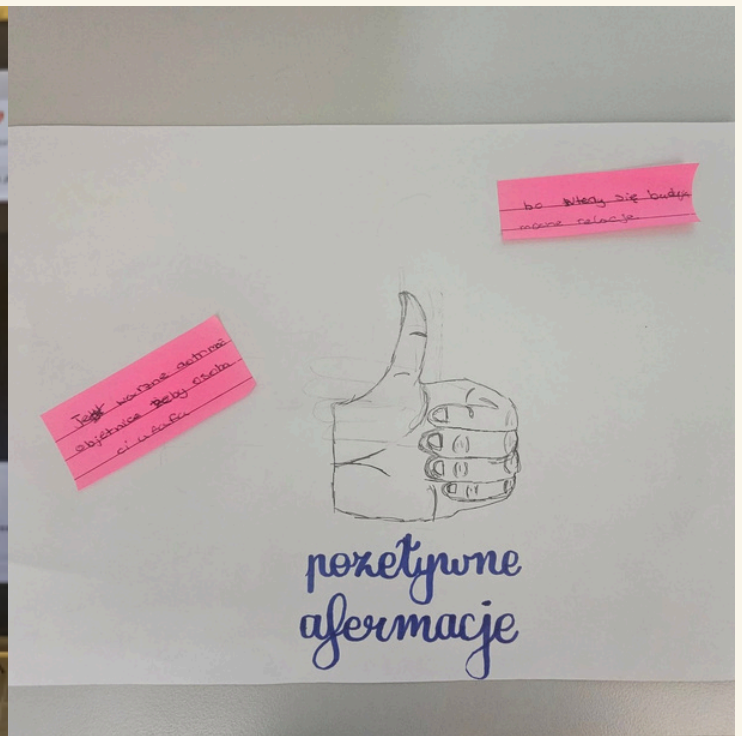 bo wtedy się budują
mocne relacje.
Jest ważne dotrzmać
objetnice żeby osoba
ci ufała
pozetywne
afermacje